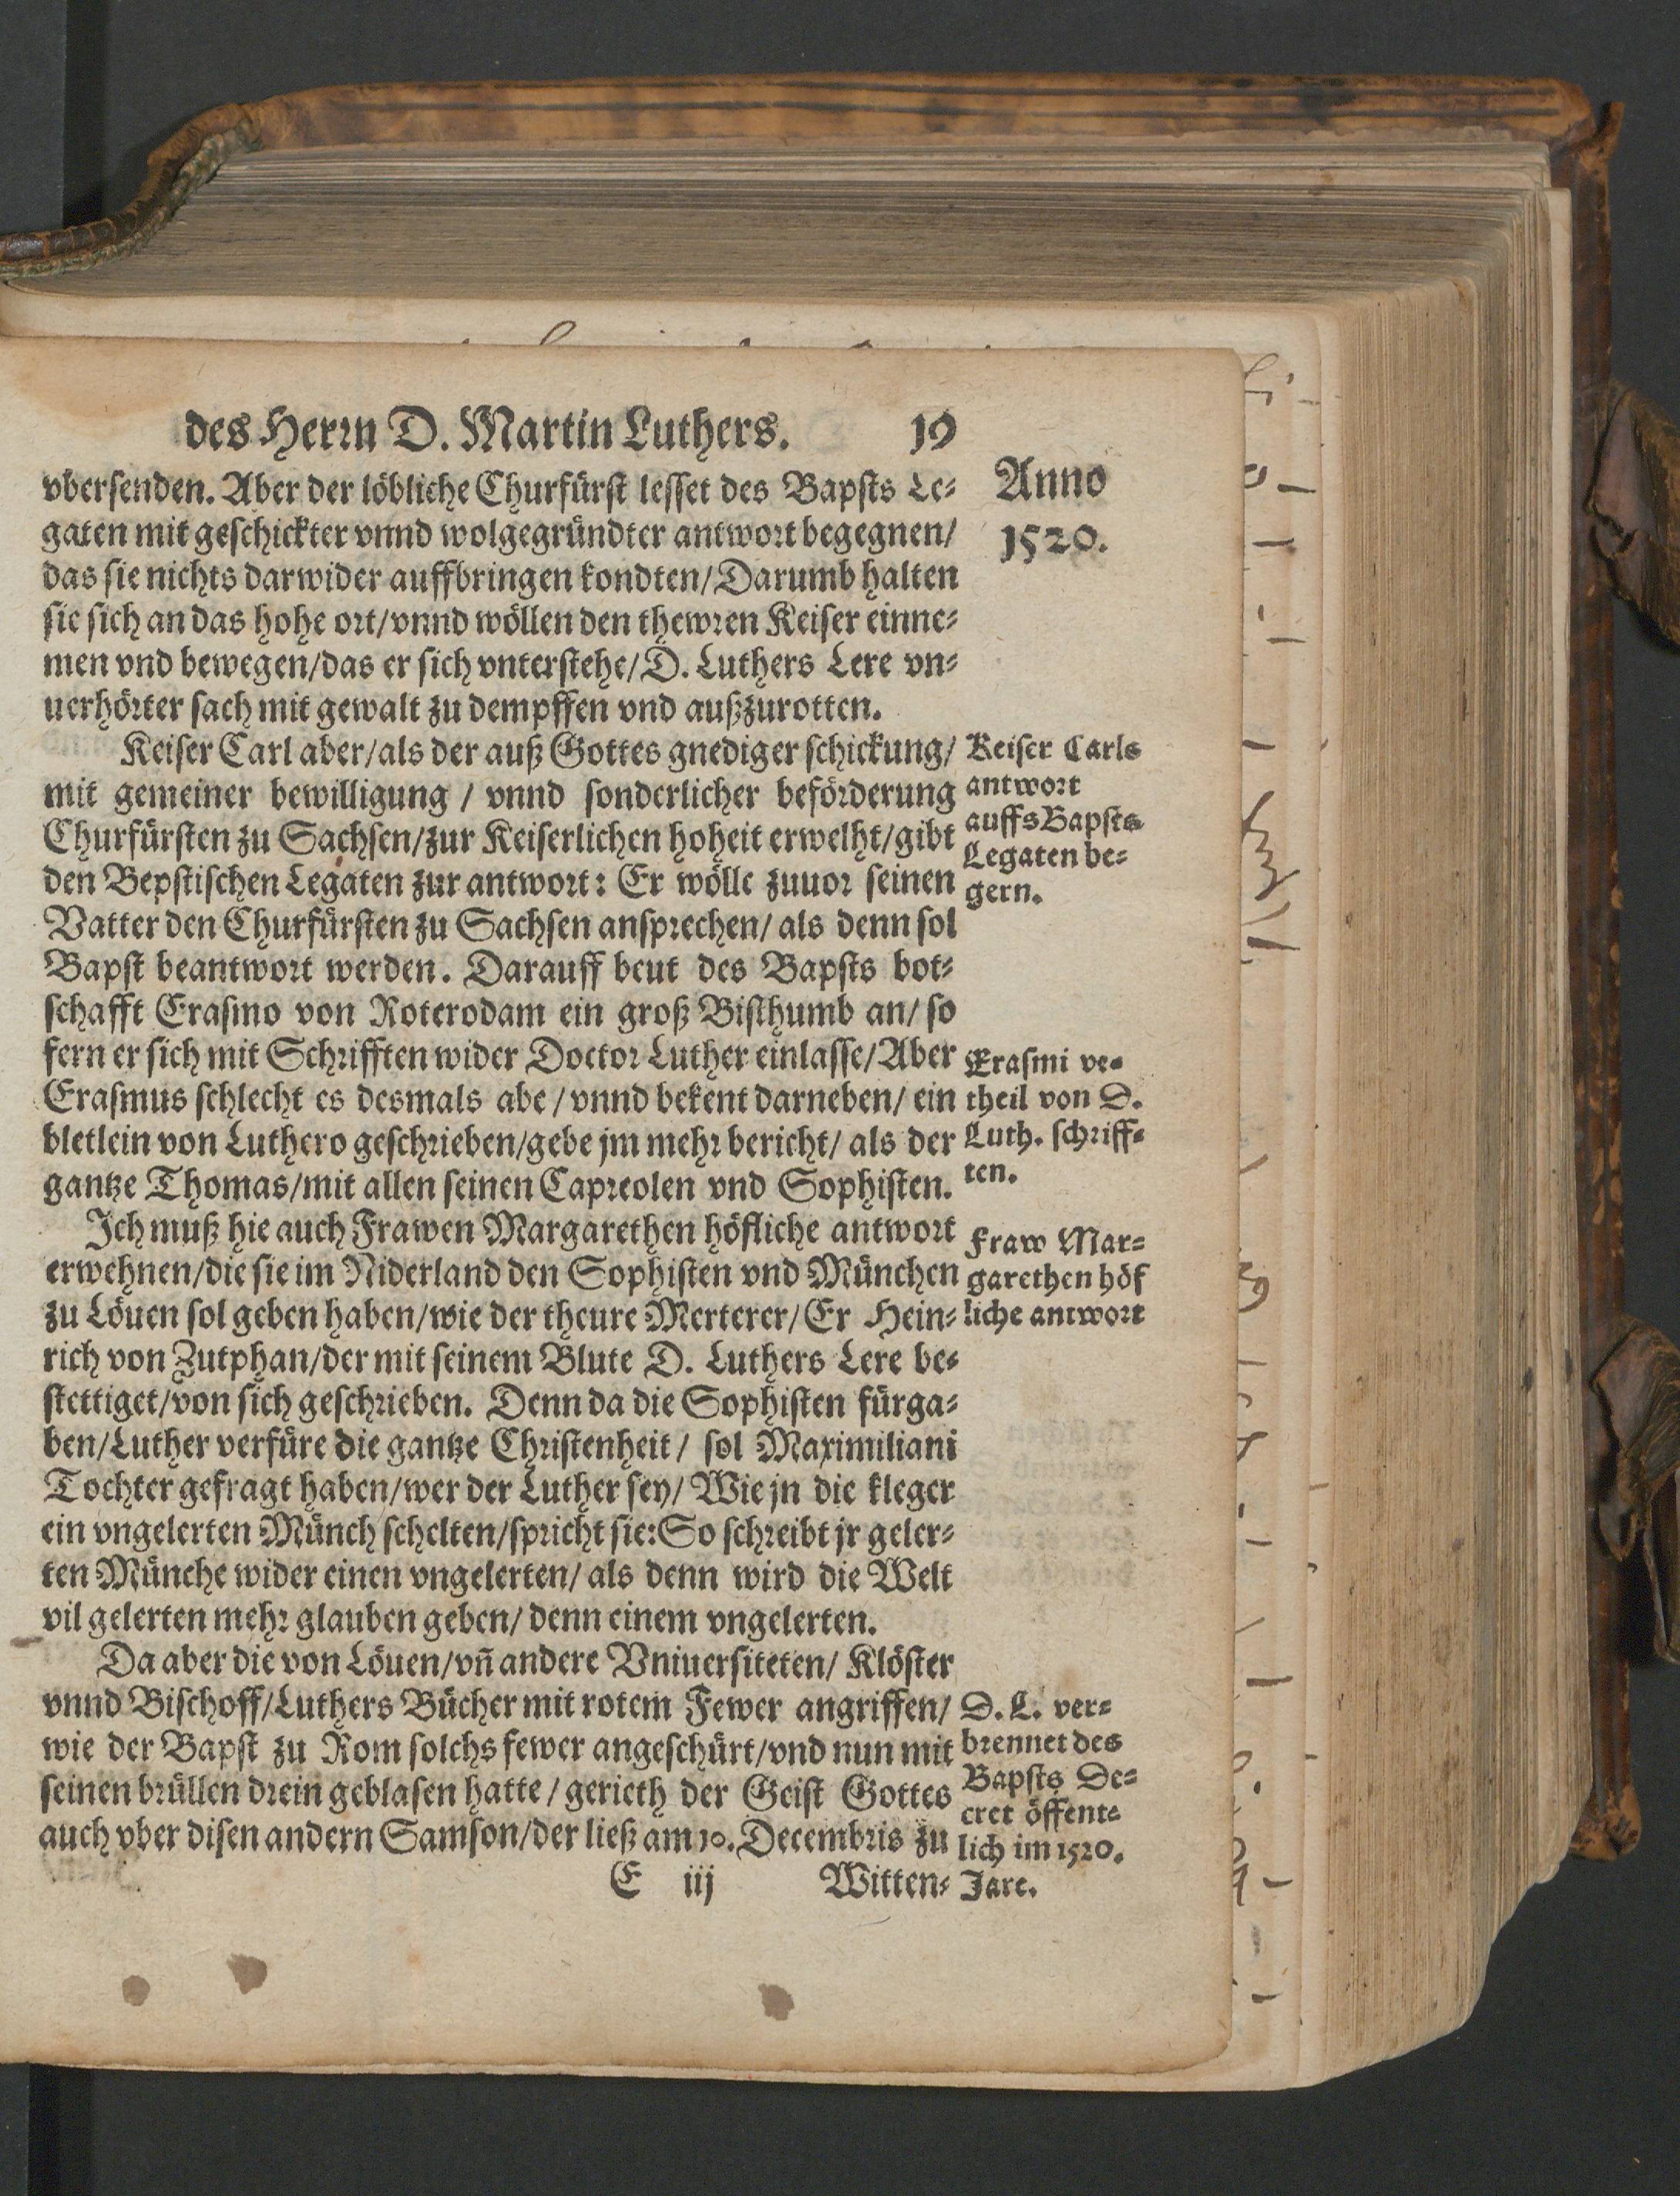 des Herrn D. Martin Luthers. 19
vbersenden. Aber der löbliche Churfürst lesset des Bapsts Le-
gaten mit geschickter vnnd wolgegründter antwort begegnen/
das sie nichts darwider auffbringen kondten/Darumb halten
sie sich an das hohe ort/vnnd wöllen den thewren Keiser einne-
men vnd bewegen/das er sich vnterstehe/D. Luthers Lere vn-
uerhörter sach mit gewalt zu dempffen vnd außzurotten.
Keiser Carl aber/als der auß Gottes gnediger schickung/
mit gemeiner bewilligung / vnnd sonderlicher beförderung
Churfürsten zu Sachsen/zur Keiserlichen hoheit erwelht/gibt
den Bepstischen Legaten zur antwort: Er wölle zuuor seinen
Vatter den Churfürsten zu Sachsen ansprechen/ als denn sol
Bapst beantwort werden. Darauff beut des Bapsts bot-
schafft Erasmo von Roterodam ein groß Bisthumb an/ so
fern er sich mit Schrifften wider Doctor Luther einlasse/Aber
Erasmus schlecht es desmals abe / vnnd bekent darneben/ ein
bletlein von Luthero geschrieben/gebe jm mehr bericht/ als der
gantze Thomas/mit allen seinen Capreolen vnd Sophisten.
Ich muß hie auch Frawen Margarethen höfliche antwort
erwehnen/die sie im Niderland den Sophisten vnd München
zu Löuen sol geben haben/wie der theure Merterer/Er Hein-
rich von Zutphan/der mit seinem Blute D. Luthers Lere be-
stettiget/von sich geschrieben. Denn da die Sophisten fürga-
ben/Luther verfüre die gantze Christenheit/ sol Maximiliani
Tochter gefragt haben/wer der Luther sey/ Wie jn die kleger
ein vngelerten Münch schelten/spricht sie:So schreibt jr geler-
ten Münche wider einen vngelerten/ als denn wird die Welt
vil gelerten mehr glauben geben/ denn einem vngelerten.
Da aber die von Löuen/vñ andere Vniuersiteten/ Klöster
vnnd Bischoff/Luthers Bücher mit rotem Fewer angriffen/
wie der Bapst zu Rom solchs fewer angeschürt/vnd nun mit
seinen brüllen drein geblasen hatte / gerieth der Geist Gottes
auch vber disen andern Samson/der ließ am 10. Decembris zu
E iij Witten-
Anno
1520.
Keiser Carls
antwort
auffs Bapsts
Legaten be-
gern.
Erasmi ve-
theil von D.
Luth. schriff-
ten.
Fraw Mar-
garethen höf
liche antwort
D. L. ver-
brennet des
Bapsts De-
cret öffent-
lich im 1520.
Jare.